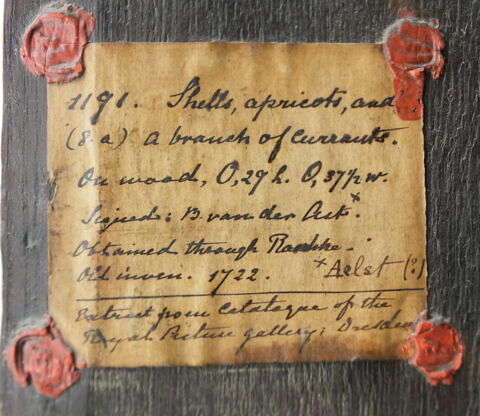 1191. Shells, apricots, and
(8.a) a branch of Currants.
On wood, 0,29 h. 0,37½ w.
Signed: B. van der Ast.ˣ
Obtained through Raschke.
Old inven. 1722. ˣAelst (?)
Extract from Catalogue of the
Royal Picture gallery: Dresden